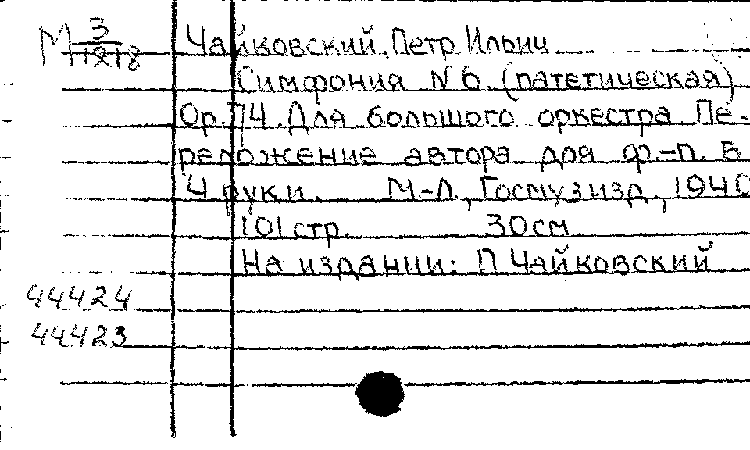 М 3/11818
Чайковский, Петр Ильич
Симфония № 6 (патетическая)
Op. 74. Для большого оркестра. Пе-
реложение автора для ф.-п. в
4 руки. М-Л., Госмузизд, 1940
101 стр. 30 см
На издании: П Чайковский
44424
44423